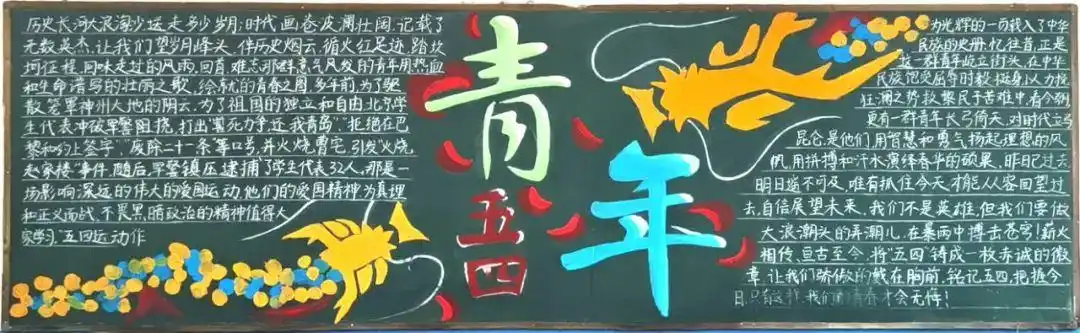 历史长河大浪淘沙送走多少岁月;时代画卷波澜壮阔,记载了
无数英杰,让我们望岁月峰头,伴历史烟云,循火红足迹,踏坎
坷征程,回味走过的风雨,回首,难忘那群意气风发的青年用热血
和生命谱写的壮丽之歌,绘就的青春之图,多年前,为了驱
散笼罩神州大地的阴云,为了祖国的独立和自由,北京学
生代表冲破军警阻挠,打出"誓死力争,还我青岛","拒绝在巴
黎和约上签字","废除二十一条"等口号,并火烧曹宅,引发"火烧
赵家楼"事件,随后,军警镇压,逮捕了学生代表32人,那是一
场影响深远的伟大的爱国运动,他们的爱国精神为真理
和正义而战,不畏黑暗政治的精神值得大
家学习,五四运动作
青年
五四
为光辉的一页载入了中华
民族的史册,忆往昔,正是
这一群青年屹立街头,在中华
民族饱受屈辱时毅挺身以力挽
狂澜之势救黎民于苦难中,看今朝
更有一群青年长弓倚天,对时代立马
昆仑,是他们用智慧和勇气扬起理想的风
帆,用拼搏和汗水演绎春华的硕果,昨日已过去
明日遥不可及,唯有抓住今天才能从容回望过
去,自信展望未来,我们不是英雄,但我们要做
大浪潮头的弄潮儿,在暴雨中搏击苍穹!薪火
相传,亘古至今,将"五四"铸成一枚赤诚的徽
章,让我们骄傲的戴在胸前,铭记五四,把握今
日,只有这样,我们的青春才会无悔!